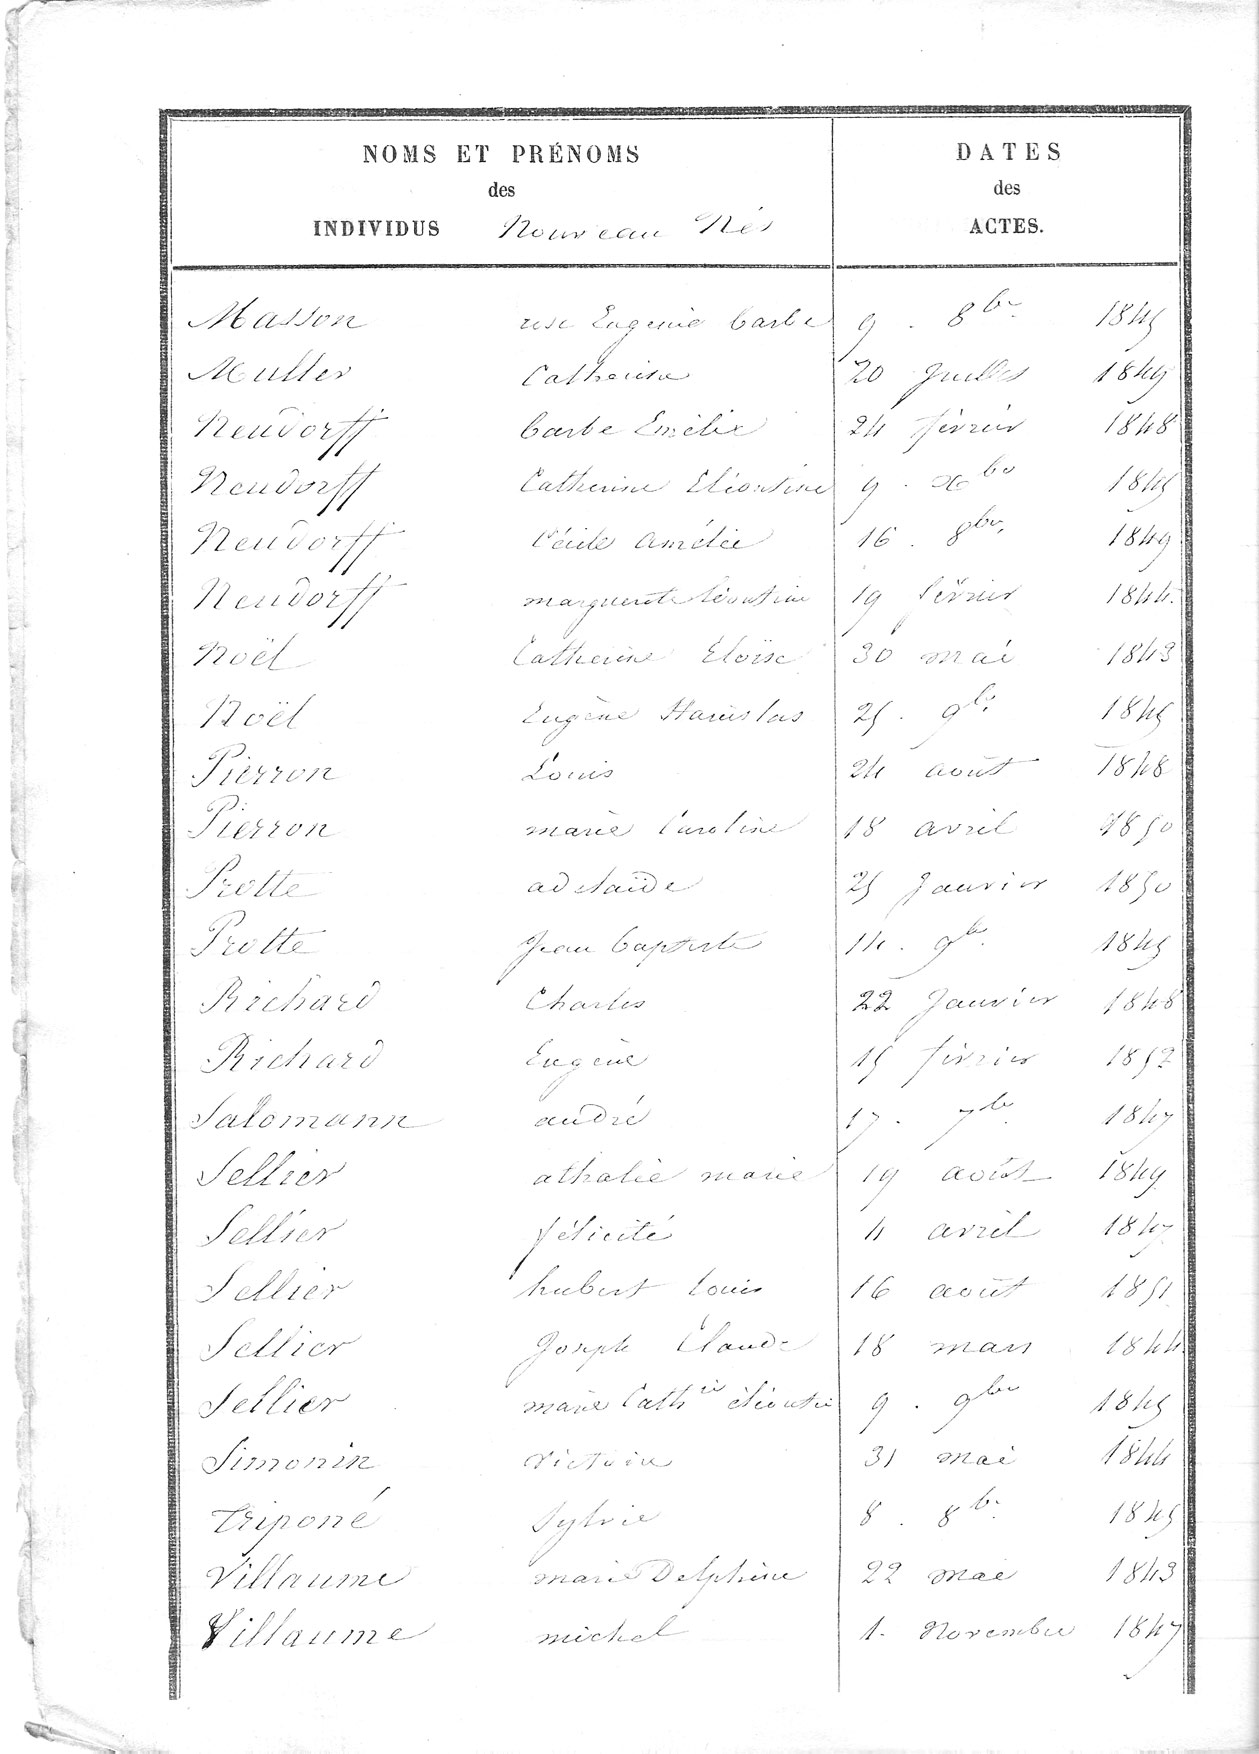 NOMS ET PRÉNOMS
des
INDIVIDUS Nouveau Nés
DATES
des
ACTES.
Masson rose Eugénie barbe 9 . 8bre 1845
Muller Catherine 20 Juillet 1849
Neudorff barbe Emélie 24 février 1848
Neudorff Catherine Eléontine 9 . xbre 1845
Neudorff Cécile amélie 16 . 8bre 1849
Neudorff marguerite léontine 19 février 1844.
Noël Catherine Eloïse 30 mai 1843
Noël Eugène Stanislas 25 . 9bre 1845
Pierron Louis 24 août 1848
Pierron marie Caroline 18 avril 1850
Protte adelaïde 25 Janvier 1850
Protte Jean baptiste 14 . 9bre 1845
Richard Charles 22 Janvier 1848
Richard Eugène 15 février 1852
Salomann andré 17 . 7bre 1847
Sellier athalie marie 19 août 1849
Sellier félicité 4 avril 1847
Sellier hubert louis 16 août 1851
Sellier Joseph Claude 18 mars 1844
Sellier marie Cathie éléontie 9 . 9bre 1845
Simonin victoire 31 mai 1844
Triponé Sylvie 8 . 8bre 1845
Villaume marie Delphine 22 mai 1843
Villaume michel 1. Novembre 1847